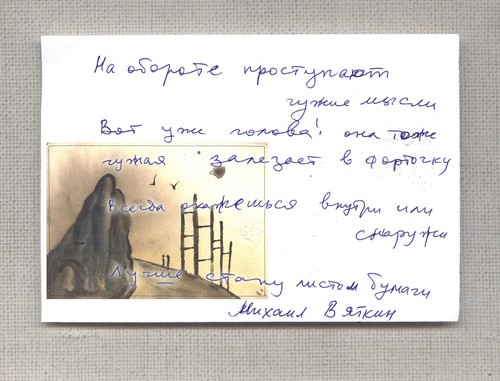 На обороте проступают
чужие мысли
Вот уже голова! она тоже
чужая залезает в форточку
Всегда окажешься внутри или
снаружи
Лучше стану листом бумаги
Михаил Вяткин